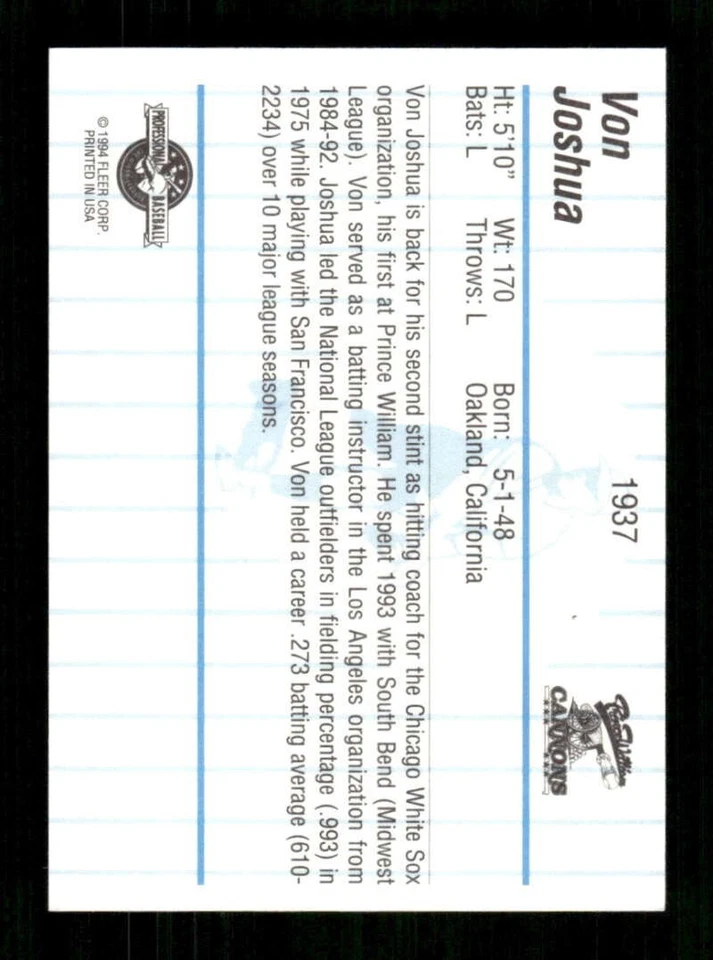 Von
Joshua
1937
Prince William
CANNONS
Ht: 5'10" Wt: 170 Born: 5-1-48
Bats: L Throws: L Oakland, California
Von Joshua is back for his second stint as hitting coach for the Chicago White Sox
organization, his first at Prince William. He spent 1993 with South Bend (Midwest
League). Von served as a batting instructor in the Los Angeles organization from
1984-92. Joshua led the National League outfielders in fielding percentage (.993) in
1975 while playing with San Francisco. Von held a career .273 batting average (610-
2234) over 10 major league seasons.
PROFESSIONAL BASEBALL
© 1994 FLEER CORP.
PRINTED IN USA